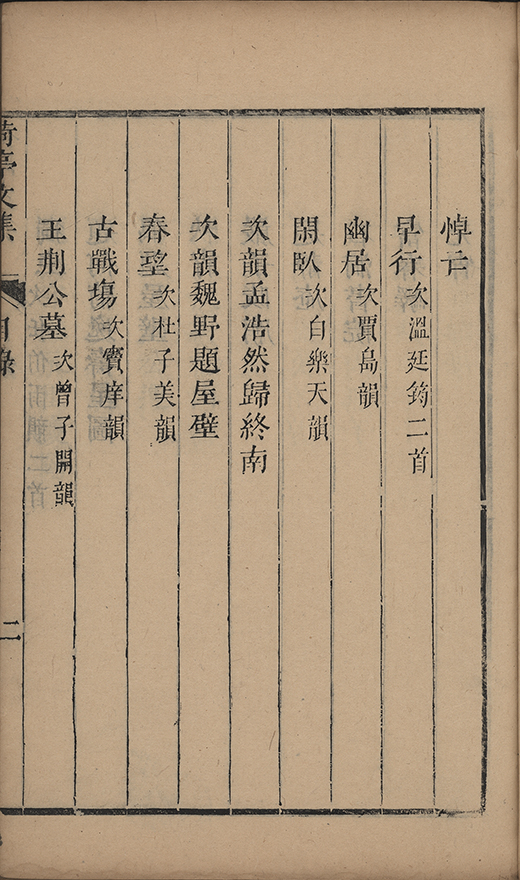 悼亡
早行次溫廷筠二首
幽居次賈島韻
閒臥次白樂天韻
次韻孟浩然歸終南
次韻魏野題屋壁
春望次杜子美韻
古戰場次竇庠韻
王荆公墓次曾子開韻
亭文集
目錄
二